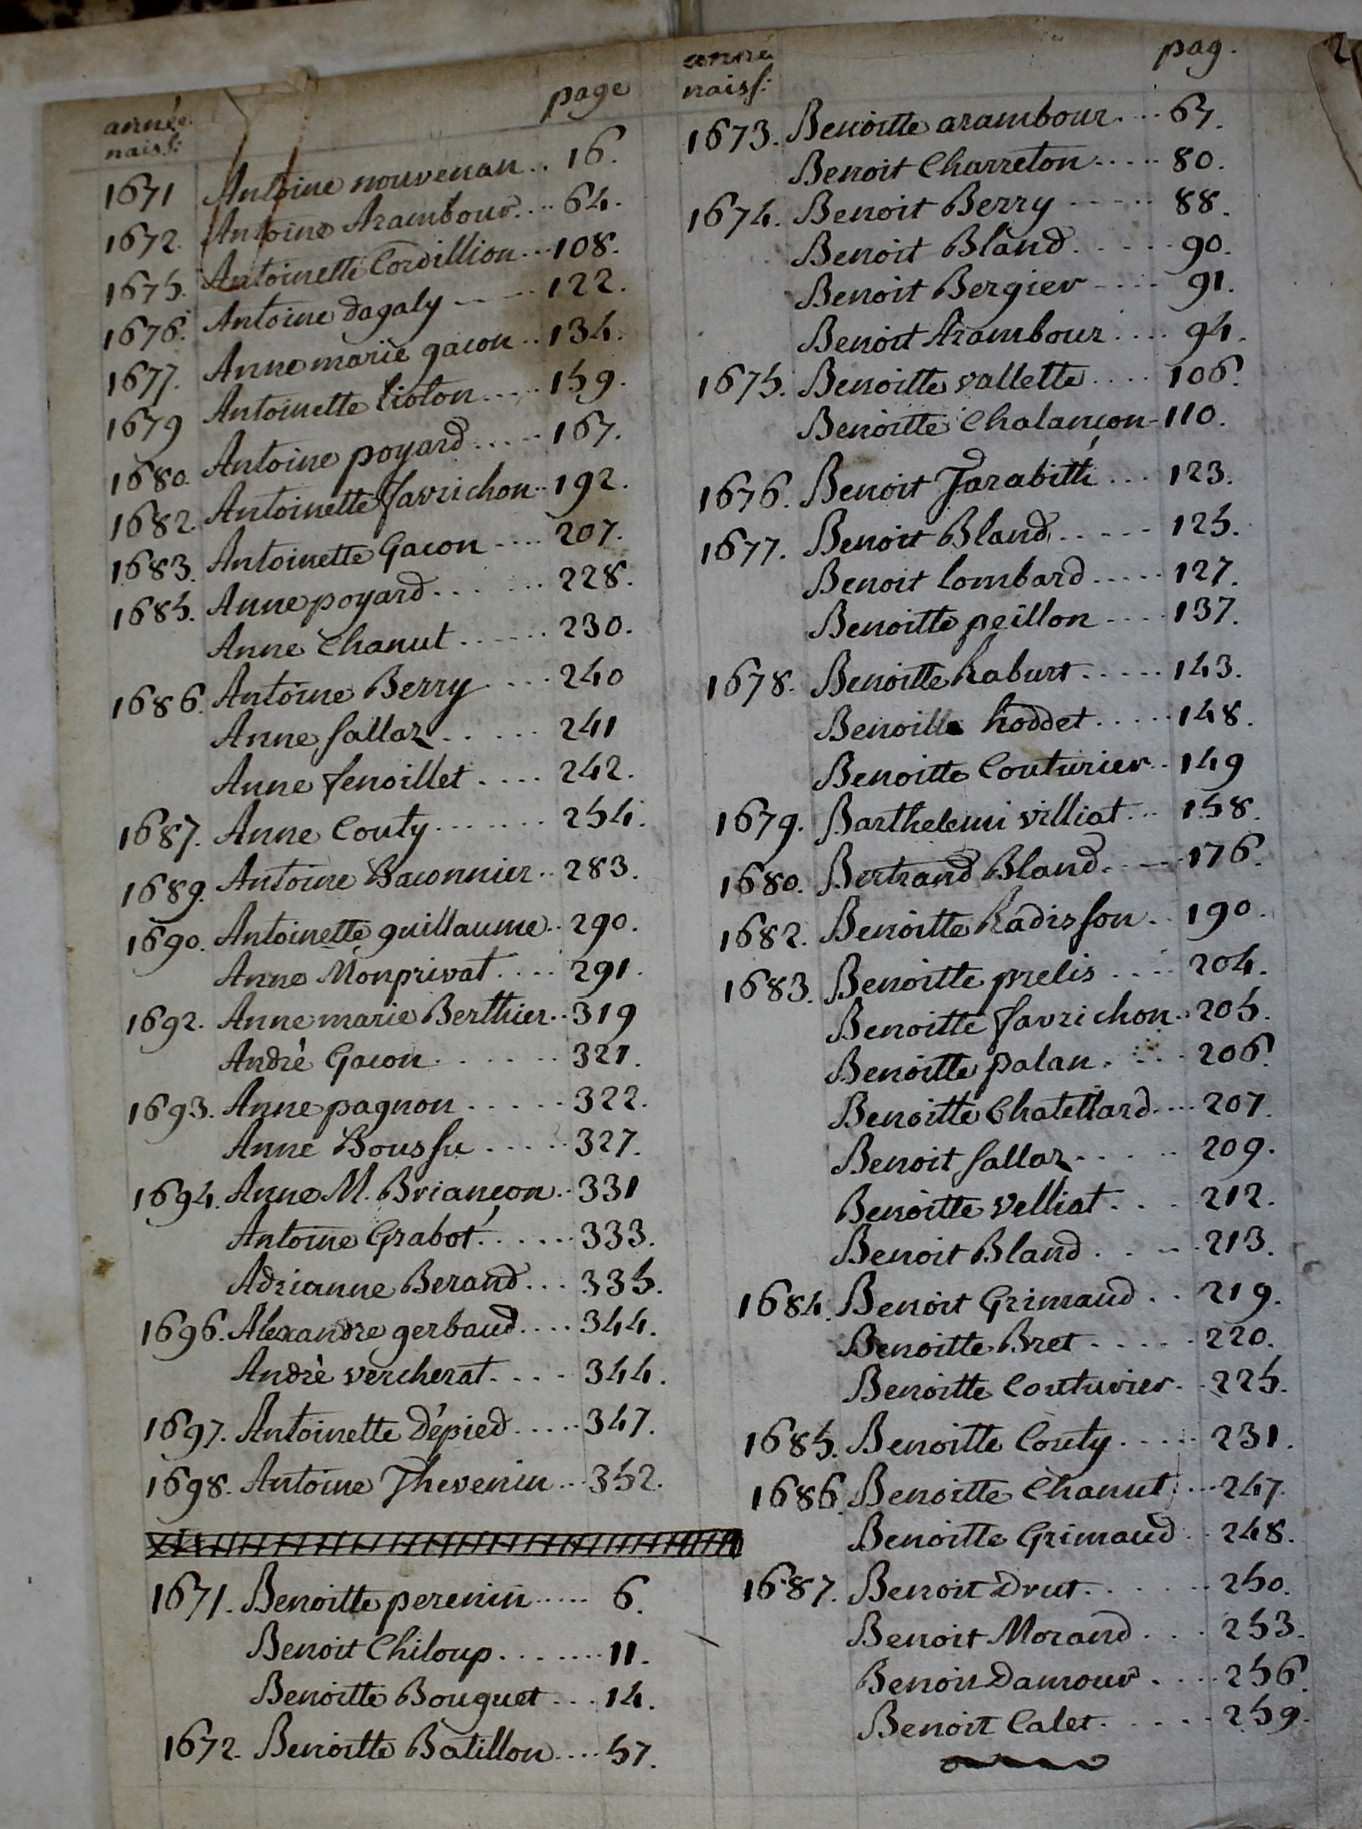 année naiss: page
1671 Antoine nouvenan .. 16.
1672. Antoine Arambour .... 64.
1675. Antoinette Cordillion ... 108.
1676. Antoine dagaly ---- 122.
1677. Anne marie gacon .. 134.
1679 Antoinette liolon .... 159.
1680. Antoine poyard ..... 167.
1682. Antoinette favrichon .. 192.
1683. Antoinette Gacon .... 207.
1685. Anne poyard ...... 228.
Anne Chanut ...... 230.
1686. Antoine Berry ... 240
Anne Sallaz ...... 241
Anne fenoillet .... 242.
1687. Anne Couty ....... 254.
1689. Antoine Baconnier .. 283.
1690. Antoinette guillaume .. 290.
Anne Monprivat .... 291.
1692. Anne marie Berthier .. 319
André Gacon ...... 321.
1693. Anne pagnon ..... 322.
Anne Boussu ..... 327.
1694. Anne M. Briançon .. 331
Antoine Grabot ...... 333.
Adrianne Berand ... 335.
1696. Alexandre gerbaud .... 344.
André vercherat .... 344.
1697. Antoinette Dépied ..... 347.
1698. Antoine Thevenin .. 352.
1671. Benoitte perenin ..... 6.
Benoit Chiloup ....... 11.
Benoitte Bouquet ... 14.
1672. Benoitte Batillon .... 57.
année naiss: pag.
1673. Benoitte arambour ... 67.
Benoit Charreton ..... 80.
1674. Benoit Berry ..... 88.
Benoit Bland ..... 90.
Benoit Bergier ---- 91.
Benoit Arambour .... 94.
1675. Benoitte vallette .... 106.
Benoitte Chalançon - 110.
1676. Benoit Jarabitté ... 123.
1677. Benoit Bland ..... 125.
Benoit lombard ..... 127.
Benoitte peillon .... 137.
1678. Benoitte Raburt ..... 143.
Benoitte hoddet ..... 148.
Benoitte Couturier .. 149
1679. Barthelemi villiat ... 158.
1680. Bertrand Bland .... 176.
1682. Benoitte Radisson .. 190.
1683. Benoitte prelis .... 204.
Benoitte favrichon .. 205.
Benoitte palan .... 206.
Benoitte Chatellard .... 207.
Benoit Sallaz ..... 209.
Benoitte velliat .... 212.
Benoit Bland .... 213.
1684. Benoit Grimaud .. 219.
Benoitte Bret ..... 220.
Benoitte Couturier .. 225.
1685. Benoitte Couty ..... 231.
1686. Benoitte Chanut ... 247.
Benoitte Grimaud .. 248.
1687. Benoit Drut ...... 250.
Benoit Morand ... 253.
Benoit Damour .... 256.
Benoit Calet ..... 259.